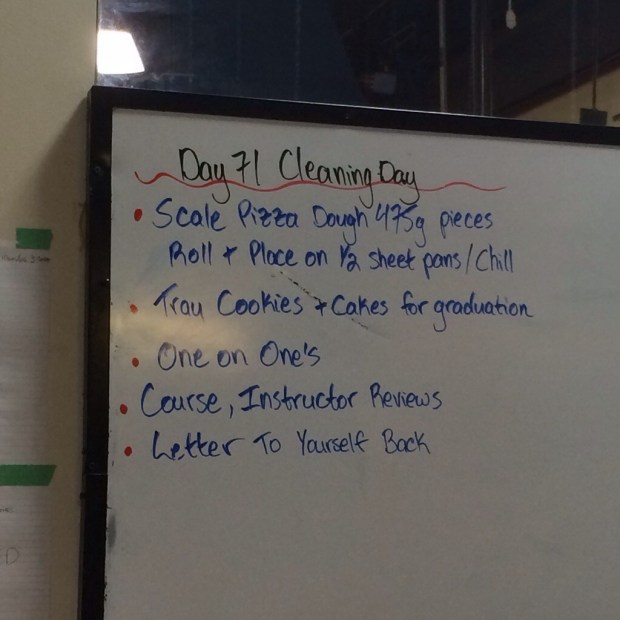 Day 71 Cleaning Day
• Scale Pizza Dough 475g pieces
Roll + Place on 1/2 sheet pans/Chill
• Tray Cookies + Cakes for graduation
• One on One's
• Course, Instructor Reviews
• Letter To Yourself Back
D